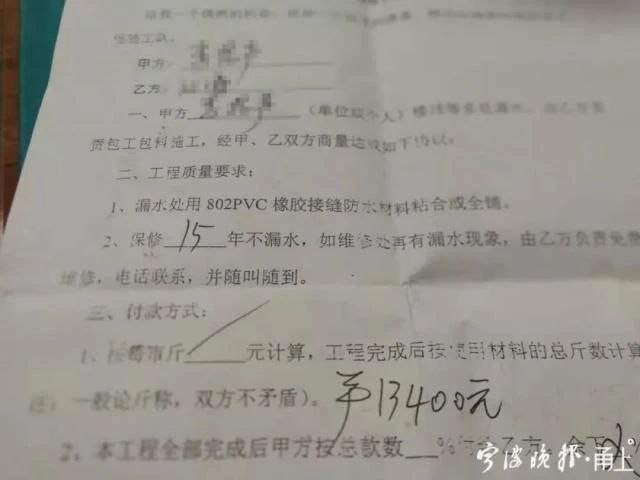 程施工队。
甲方:
乙方:
一、甲方 (单位或个人) 楼顶等多处漏水,由乙方负
责包工包料施工,经甲、乙双方商量达成如下协议:
二、工程质量要求:
1、漏水处用 802PVC 橡胶接缝防水材料粘合或全铺。
2、保修 15 年不漏水,如维修处再有漏水现象,由乙方负责免费
维修,电话联系,并随叫随到。
三、付款方式:
1、按每市斤 元计算,工程完成后按使用材料的总斤数计算
注:一般论斤称,双方不矛盾)。 13400元
2、本工程全部完成后甲方按总款数 % 乙方,余下
宁波晚报·甬上